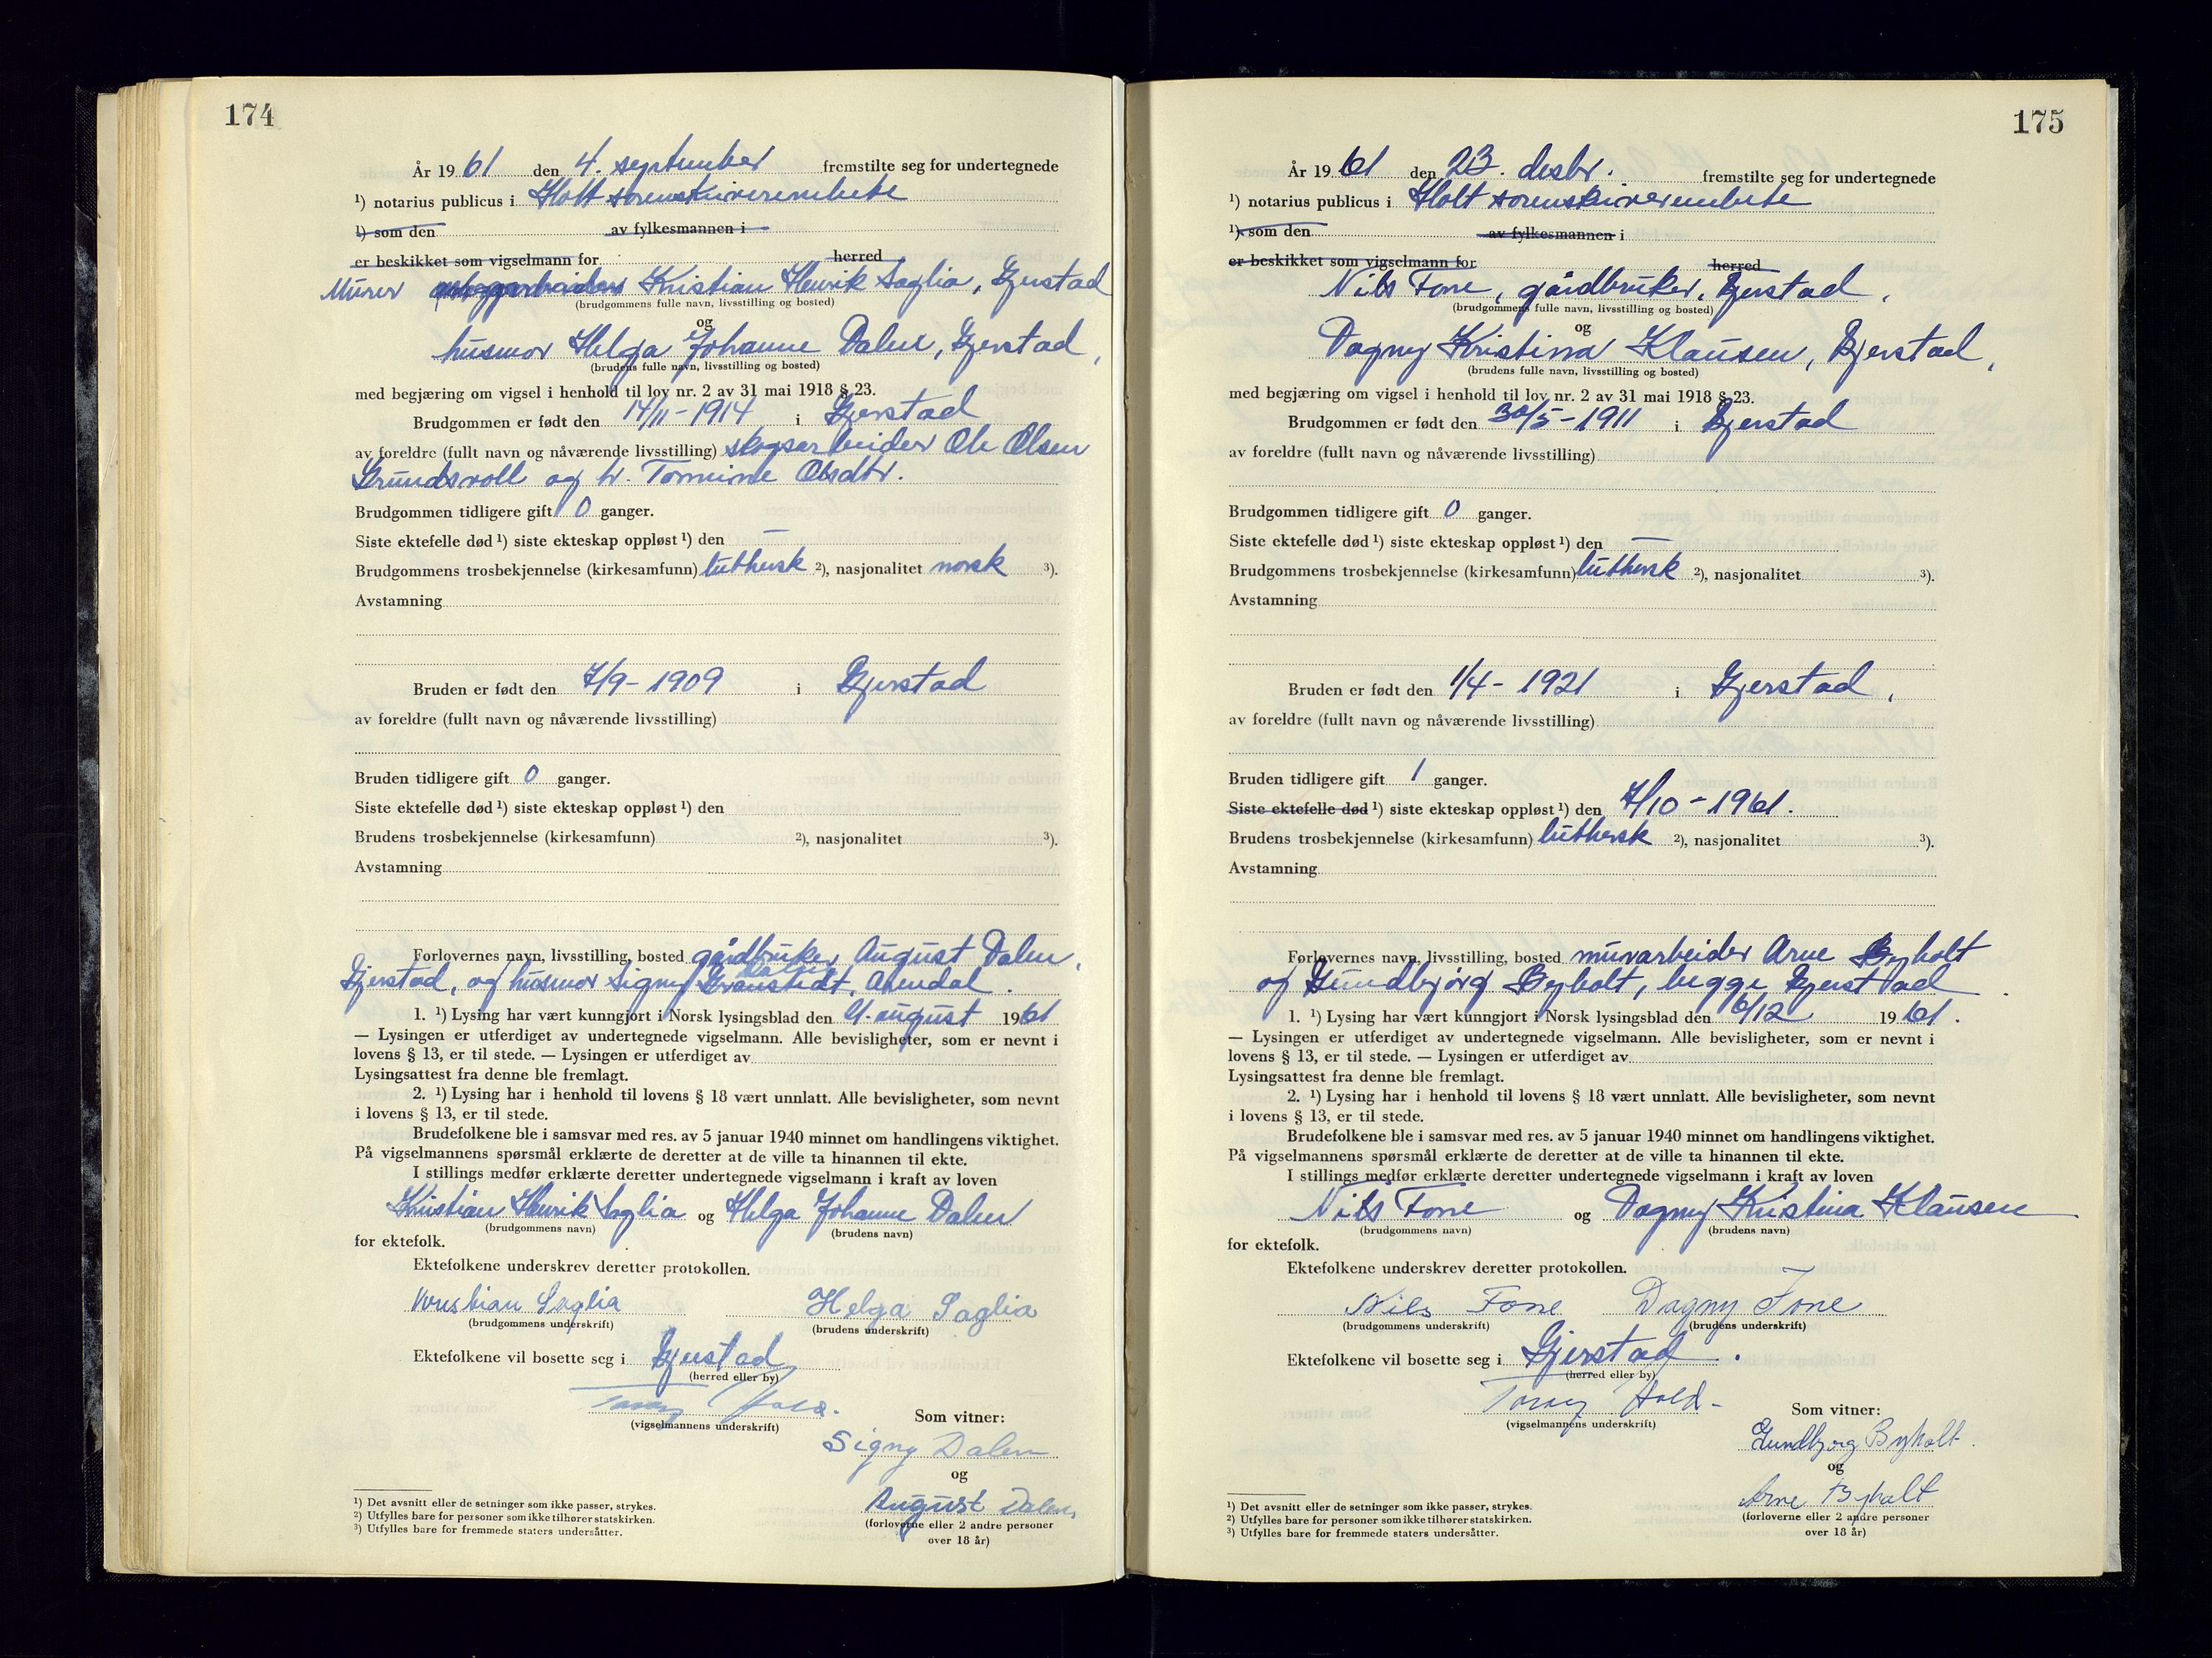 174
År 19 61 den 4. september fremstilte seg for undertegnede
¹) notarius publicus i Holt sorenskriverembete
¹) som den av fylkesmannen i
er beskikket som vigselmann for herred
Murer Kristian Henrik Saglia, Gjerstad
(brudgommens fulle navn, livsstilling og bosted)
og
husmor Helga Johanne Dalen, Gjerstad,
(brudens fulle navn, livsstilling og bosted)
med begjæring om vigsel i henhold til lov nr. 2 av 31 mai 1918 § 23.
Brudgommen er født den 14/11-1914 i Gjerstad
av foreldre (fullt navn og nåværende livsstilling) skogsarbeider Ole Olsen
Grundsvoll og h. Tomine Olsdtr.
Brudgommen tidligere gift 0 ganger.
Siste ektefelle død ¹) siste ekteskap oppløst ¹) den —
Brudgommens trosbekjennelse (kirkesamfunn) luthersk ²), nasjonalitet norsk ³).
Avstamning
Bruden er født den 7/9-1909 i Gjerstad
av foreldre (fullt navn og nåværende livsstilling)
Bruden tidligere gift 0 ganger.
Siste ektefelle død ¹) siste ekteskap oppløst ¹) den
Brudens trosbekjennelse (kirkesamfunn) ²), nasjonalitet ³).
Avstamning
Forlovernes navn, livsstilling, bosted gårdbruker August Dalen,
Gjerstad, og husmor Signy Dalen, Arendal.
1. ¹) Lysing har vært kunngjort i Norsk lysingsblad den 21. august 1961
— Lysingen er utferdiget av undertegnede vigselmann. Alle bevisligheter, som er nevnt i
lovens § 13, er til stede. — Lysingen er utferdiget av
Lysingsattest fra denne ble fremlagt.
2. ¹) Lysing har i henhold til lovens § 18 vært unnlatt. Alle bevisligheter, som nevnt
i lovens § 13, er til stede.
Brudefolkene ble i samsvar med res. av 5 januar 1940 minnet om handlingens viktighet.
På vigselmannens spørsmål erklærte de deretter at de ville ta hinannen til ekte.
I stillings medfør erklærte deretter undertegnede vigselmann i kraft av loven
Kristian Henrik Saglia og Helga Johanne Dalen
(brudgommens navn) (brudens navn)
for ektefolk.
Ektefolkene underskrev deretter protokollen.
Kristian Saglia Helga Saglia
(brudgommens underskrift) (brudens underskrift)
Ektefolkene vil bosette seg i Gjerstad
(herred eller by)
(vigselmannens underskrift)
Som vitner:
Signy Dalen
og
August Dalen
(forloverne eller 2 andre personer
over 18 år)
¹) Det avsnitt eller de setninger som ikke passer, strykes.
²) Utfylles bare for personer som ikke tilhører statskirken.
³) Utfylles bare for fremmede staters undersåtter.
175
År 19 61 den 23. desbr. fremstilte seg for undertegnede
¹) notarius publicus i Holt sorenskriverembete
¹) som den av fylkesmannen i
er beskikket som vigselmann for herred
Nils Fone, gårdbruker, Gjerstad,
(brudgommens fulle navn, livsstilling og bosted)
og
Dagny Kristina Klausen, Gjerstad,
(brudens fulle navn, livsstilling og bosted)
med begjæring om vigsel i henhold til lov nr. 2 av 31 mai 1918 § 23.
Brudgommen er født den 30/5-1911 i Gjerstad
av foreldre (fullt navn og nåværende livsstilling)
Brudgommen tidligere gift 0 ganger.
Siste ektefelle død ¹) siste ekteskap oppløst ¹) den —
Brudgommens trosbekjennelse (kirkesamfunn) luthersk ²), nasjonalitet ³).
Avstamning
Bruden er født den 1/4-1921 i Gjerstad,
av foreldre (fullt navn og nåværende livsstilling)
Bruden tidligere gift 1 ganger.
Siste ektefelle død ¹) siste ekteskap oppløst ¹) den 7/10-1961.
Brudens trosbekjennelse (kirkesamfunn) luthersk ²), nasjonalitet ³).
Avstamning
Forlovernes navn, livsstilling, bosted murarbeider Arne Byholt
og Gundbjørg Byholt, begge Gjerstad.
1. ¹) Lysing har vært kunngjort i Norsk lysingsblad den 6/12 1961.
— Lysingen er utferdiget av undertegnede vigselmann. Alle bevisligheter, som er nevnt i
lovens § 13, er til stede. — Lysingen er utferdiget av
Lysingsattest fra denne ble fremlagt.
2. ¹) Lysing har i henhold til lovens § 18 vært unnlatt. Alle bevisligheter, som nevnt
i lovens § 13, er til stede.
Brudefolkene ble i samsvar med res. av 5 januar 1940 minnet om handlingens viktighet.
På vigselmannens spørsmål erklærte de deretter at de ville ta hinannen til ekte.
I stillings medfør erklærte deretter undertegnede vigselmann i kraft av loven
Nils Fone og Dagny Kristina Klausen
(brudgommens navn) (brudens navn)
for ektefolk.
Ektefolkene underskrev deretter protokollen.
Nils Fone Dagny Fone
(brudgommens underskrift) (brudens underskrift)
Ektefolkene vil bosette seg i Gjerstad.
(herred eller by)
(vigselmannens underskrift)
Som vitner:
Gundbjørg Byholt.
og
Arne Byholt
(forloverne eller 2 andre personer
over 18 år)
¹) Det avsnitt eller de setninger som ikke passer, strykes.
²) Utfylles bare for personer som ikke tilhører statskirken.
³) Utfylles bare for fremmede staters undersåtter.